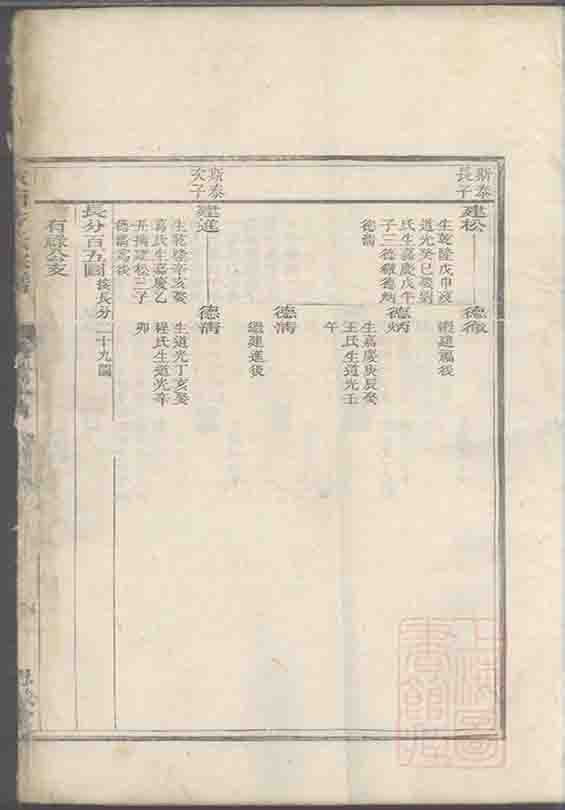 斯泰
長子
建松
生乾隆戊申歿
道光癸巳娶劉
氏生嘉慶戊午
子三德徽德炳
德清
德徽
繼建鳳後
德炳
生嘉慶庚辰娶
王氏生道光壬
午
德清
繼建進後
斯泰
次子
建進
生乾隆辛亥娶
葛氏生嘉慶乙
丑撫建松三子
德清為後
德清
生道光丁亥娶
程氏生道光辛
卯
長分百五圖
接長分二十九圖
有祿公支
上海圖
書館藏